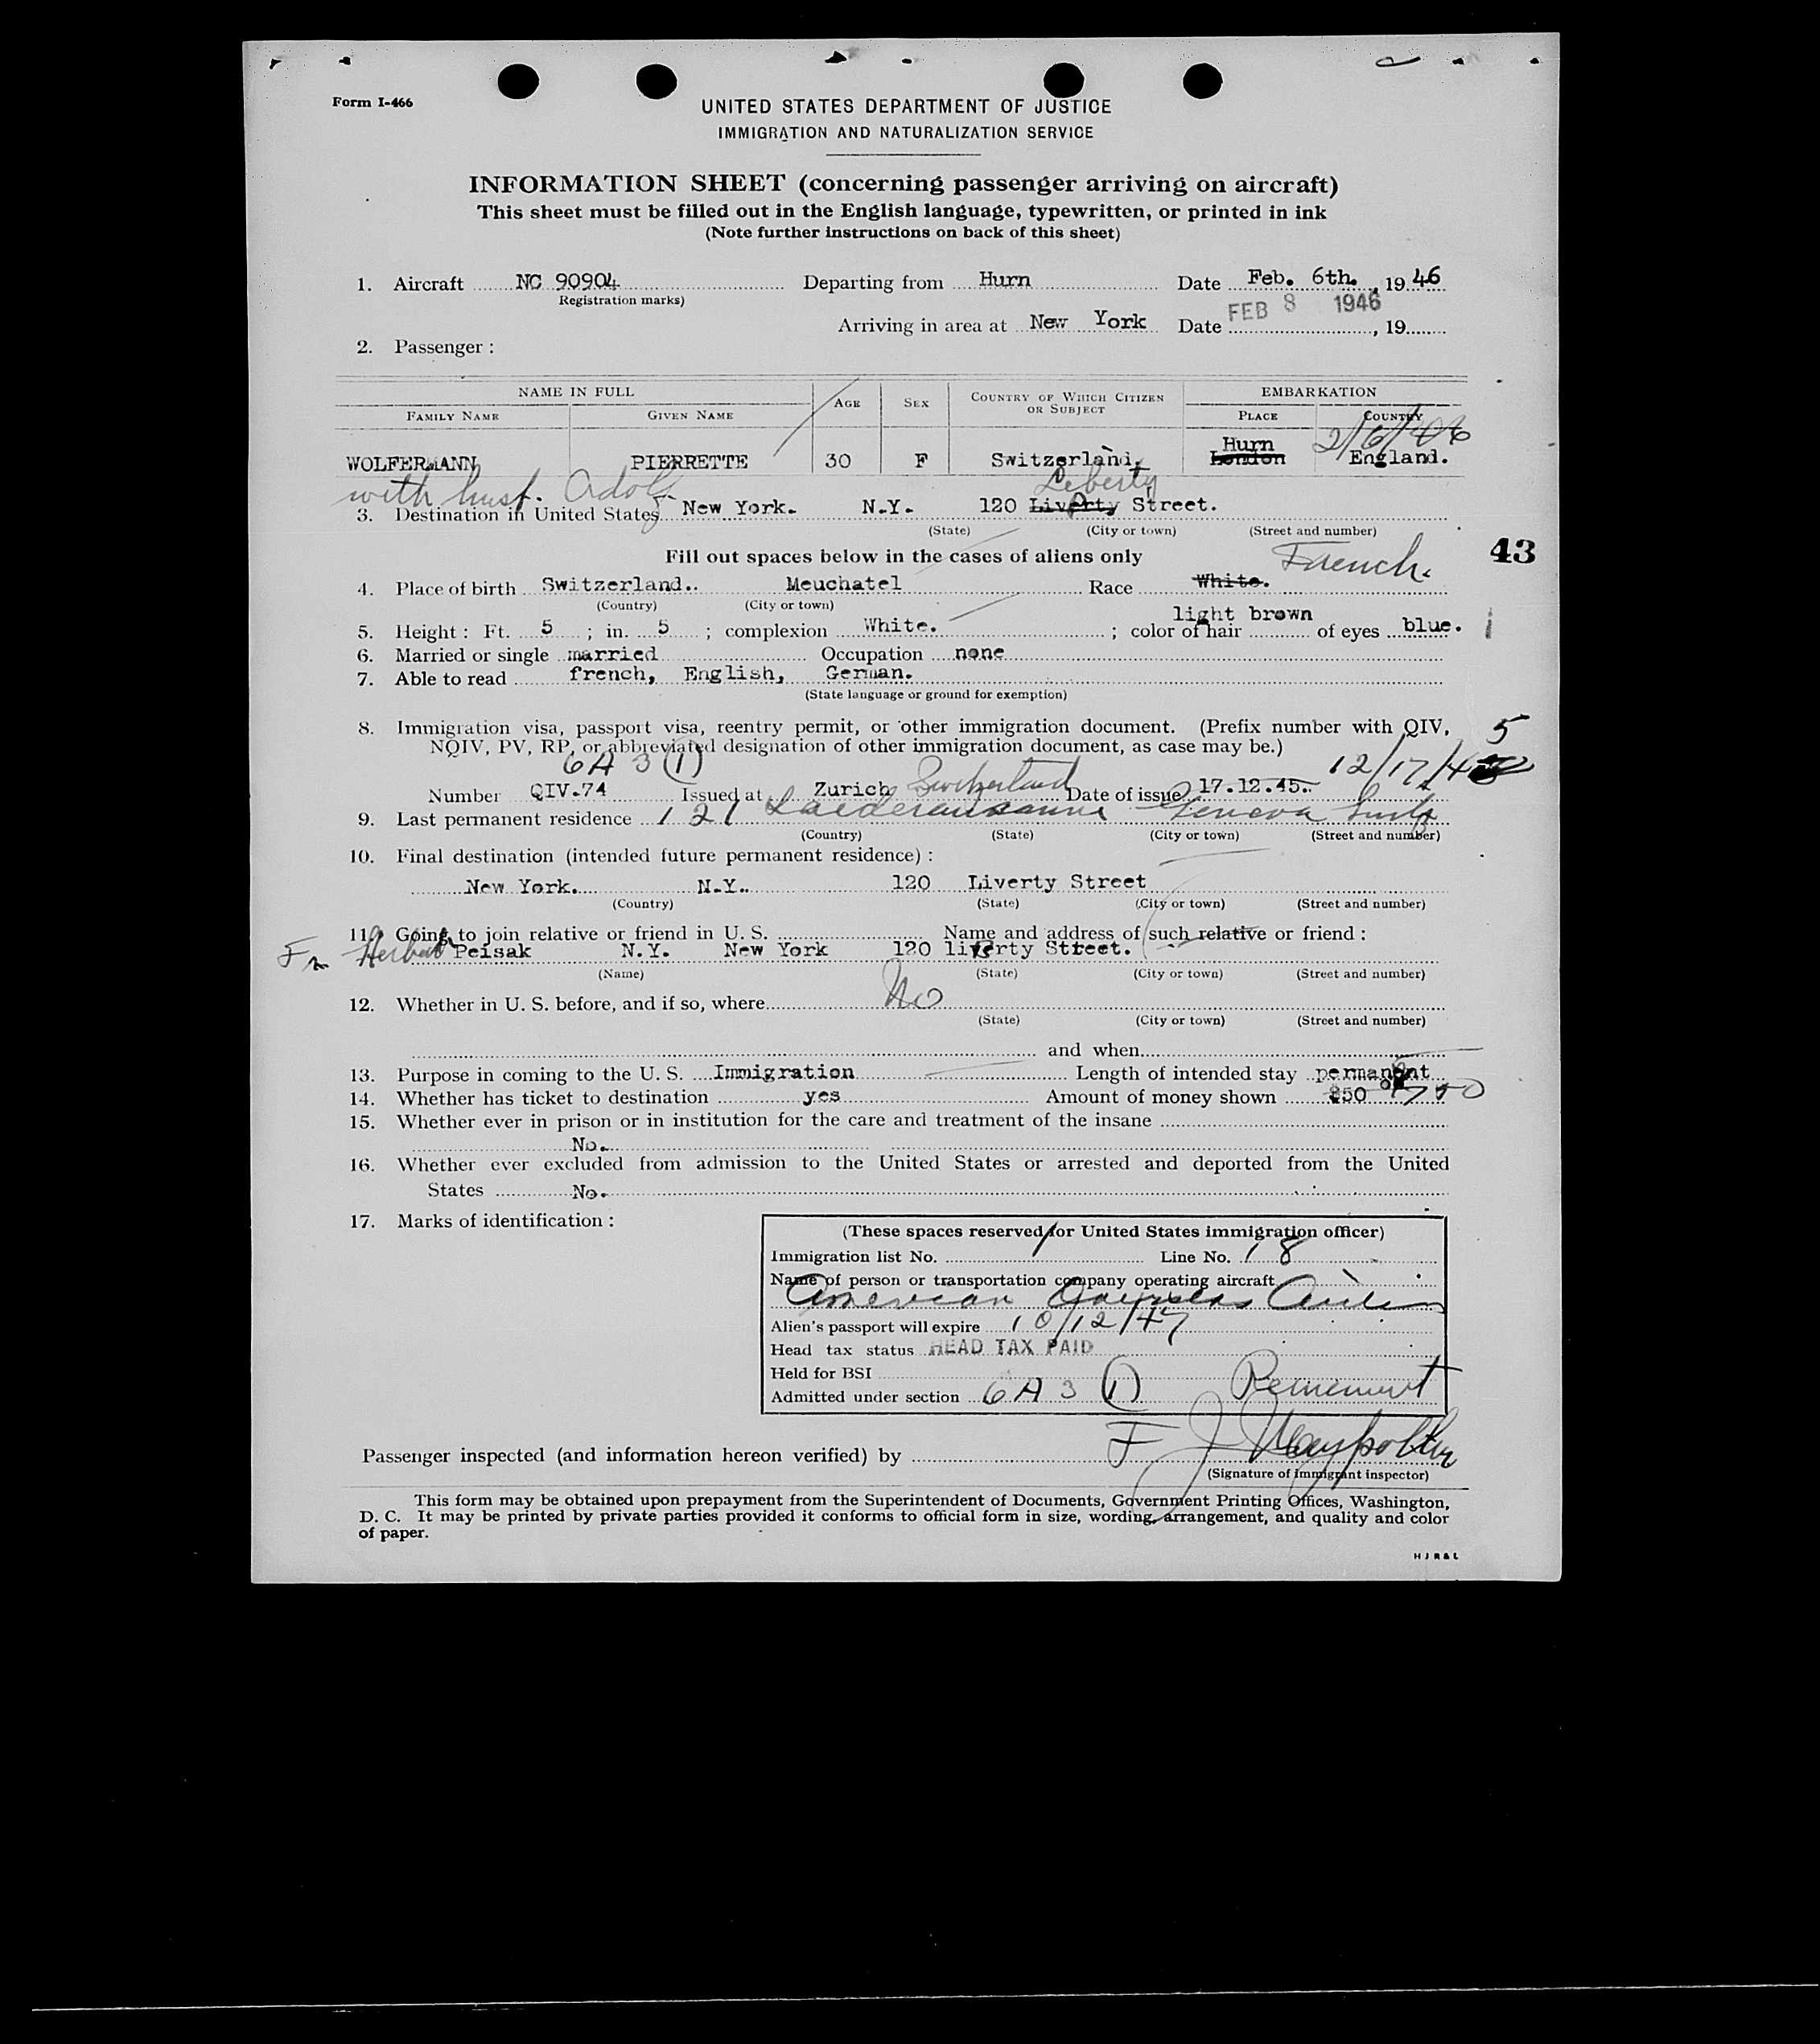 Form I-466
UNITED STATES DEPARTMENT OF JUSTICE
IMMIGRATION AND NATURALIZATION SERVICE
INFORMATION SHEET (concerning passenger arriving on aircraft)
This sheet must be filled out in the English language, typewritten, or printed in ink
(Note further instructions on back of this sheet)
1. Aircraft NC 90904 Departing from Hurn Date Feb. 6th. , 19 46
Registration marks)
FEB 8 1946
Arriving in area at New York Date , 19
2. Passenger :
NAME IN FULL AGE SEX COUNTRY OF WHICH CITIZEN OR SUBJECT EMBARKATION
FAMILY NAME GIVEN NAME PLACE COUNTRY
Hurn 2/6/46
WOLFERMANN PIERRETTE 30 F Switzerland. London England.
with husb. Adolf Liberty
3. Destination in United States New York. N.Y. 120 Liverty Street.
(State) (City or town) (Street and number)
Fill out spaces below in the cases of aliens only
French.
43
4. Place of birth Switzerland.. Meuchatel Race White.
(Country) (City or town)
light brown
5. Height : Ft. 5 ; in. 5 ; complexion White. ; color of hair of eyes blue.
6. Married or single married Occupation none
7. Able to read french, English, German.
(State language or ground for exemption)
8. Immigration visa, passport visa, reentry permit, or other immigration document. (Prefix number with QIV,
NQIV, PV, RP, or abbreviated designation of other immigration document, as case may be.)
6A 3 (1) 12/17/45
Number QIV.74 Issued at Zurich Switzerland Date of issue 17.12.45.
9. Last permanent residence 121 Geneva
(Country) (State) (City or town) (Street and number)
10. Final destination (intended future permanent residence) :
New York. N.Y. 120 Liverty Street
(Country) (State) (City or town) (Street and number)
11. Going to join relative or friend in U. S. Name and address of such relative or friend :
Fr Herbert Peisak N.Y. New York 120 liberty Street.
(Name) (State) (City or town) (Street and number)
12. Whether in U. S. before, and if so, where No
(State) (City or town) (Street and number)
and when
13. Purpose in coming to the U. S. Immigration Length of intended stay permanent
14. Whether has ticket to destination yes Amount of money shown
15. Whether ever in prison or in institution for the care and treatment of the insane
No.
16. Whether ever excluded from admission to the United States or arrested and deported from the United
States No.
17. Marks of identification :
(These spaces reserved for United States immigration officer)
Immigration list No. 1 Line No. 18
Name of person or transportation company operating aircraft
American Overseas Airlines
Alien's passport will expire 10/12/47
Head tax status HEAD TAX PAID
Held for BSI
Admitted under section 6A 3 (1)
Passenger inspected (and information hereon verified) by F J
(Signature of Immigrant inspector)
This form may be obtained upon prepayment from the Superintendent of Documents, Government Printing Offices, Washington,
D. C. It may be printed by private parties provided it conforms to official form in size, wording, arrangement, and quality and color
of paper.
H J R & L